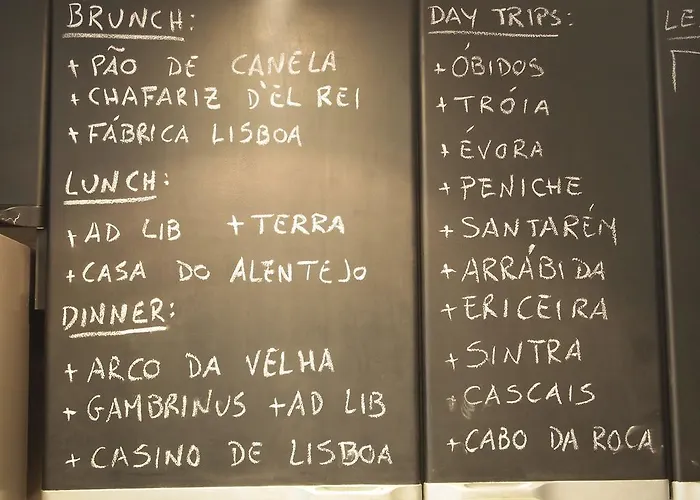 BRUNCH:
+ PÃO DE CANELA
+ CHAFARIZ D'EL REI
+ FÁBRICA LISBOA
LUNCH:
+ AD LIB + TERRA
+ CASA DO ALENTEJO
DINNER:
+ ARCO DA VELHA
+ GAMBRINUS + AD LIB
+ CASINO DE LISBOA
DAY TRIPS:
+ ÓBIDOS
+ TRÓIA
+ ÉVORA
+ PENICHE
+ SANTARÉM
+ ARRÁBIDA
+ ERICEIRA
+ SINTRA
+ CASCAIS
+ CABO DA ROCA